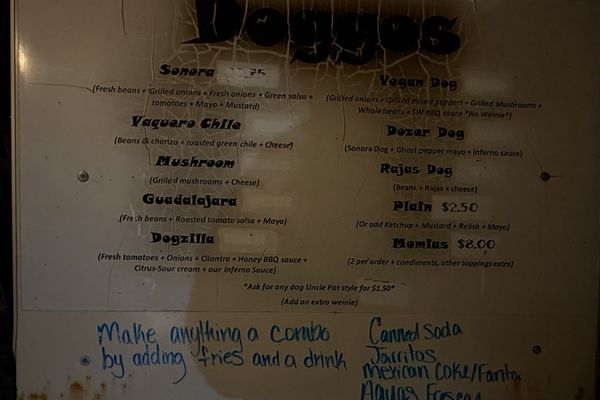 Doggos
Sonora
(Fresh beans + Grilled onions + Fresh onions + Green salsa +
tomatoes + Mayo + Mustard)
Vaquero Chile
(Beans & chorizo + roasted green chile + Cheese)
Mushroom
(Grilled mushrooms + Cheese)
Guadalajara
(Fresh beans + Roasted tomato salsa + Mayo)
Dogzilla
(Fresh tomatoes + Onions + Cilantro + Honey BBQ sauce +
Citrus-Sour cream + our Inferno Sauce)
Vegan Dog
(Grilled onions + Grilled mixed peppers + Grilled Mushrooms +
Whole beans + SW BBQ sauce *No Weinie*)
Dozer Dog
(Sonora Dog + Ghost pepper mayo + Inferno sauce)
Rajas Dog
(Beans + Rajas + cheese)
Plain $2.50
(Or add Ketchup + Mustard + Relish + Mayo)
Momias $8.00
(2 per order + condiments, other toppings extra)
*Ask for any dog Uncle Pat style for $1.50*
(Add an extra weinie)
Make anything a combo
by adding fries and a drink
Canned Soda
Jarritos
Mexican Coke/Fanta
Aguas Frescas